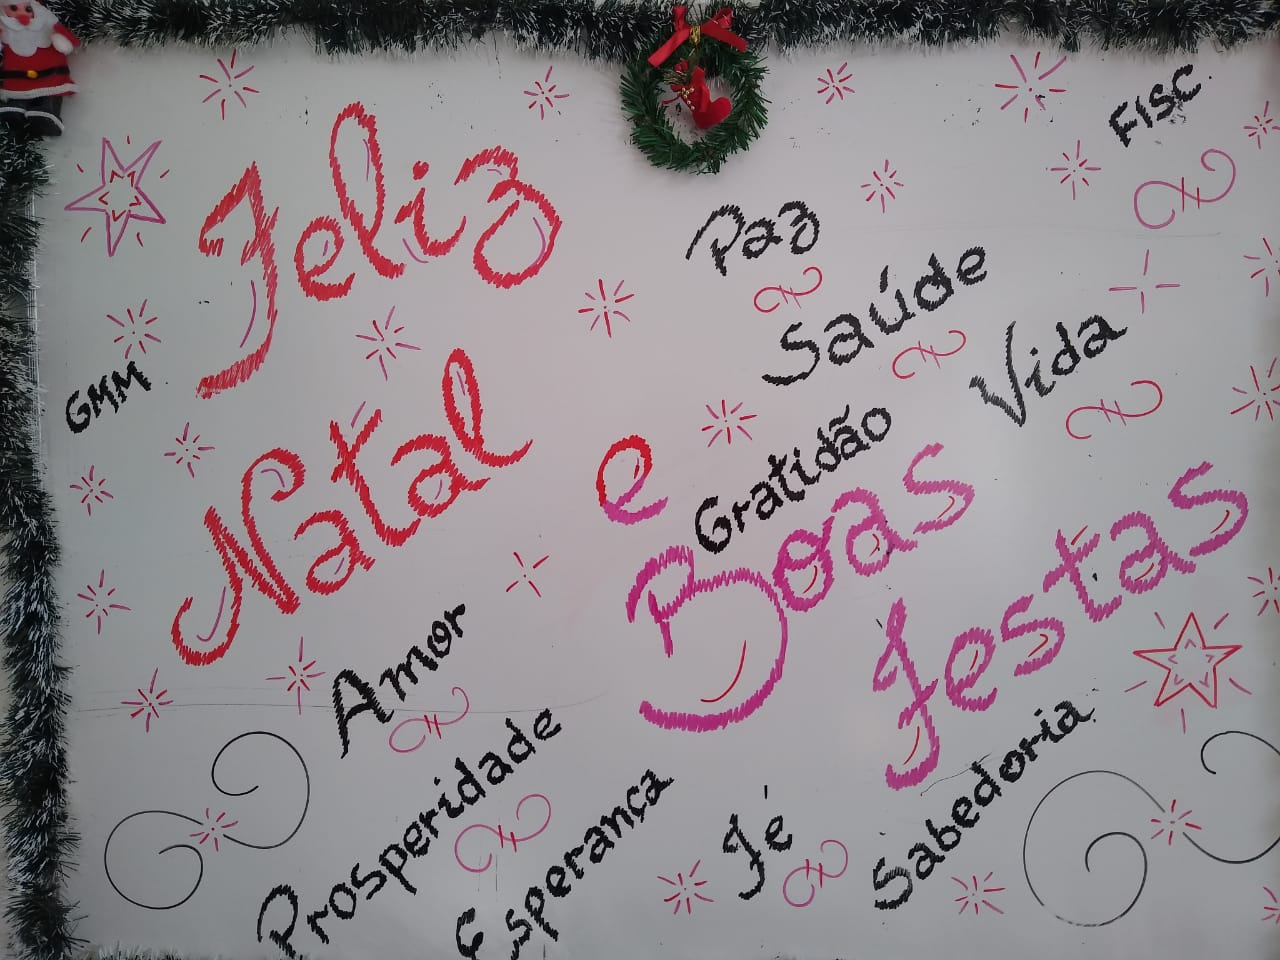 Feliz
Natal
e
Boas
Festas
FISC.
GMM
Paz
Saúde
Vida
Gratidão
Amor
Prosperidade
Esperança
Fé
Sabedoria